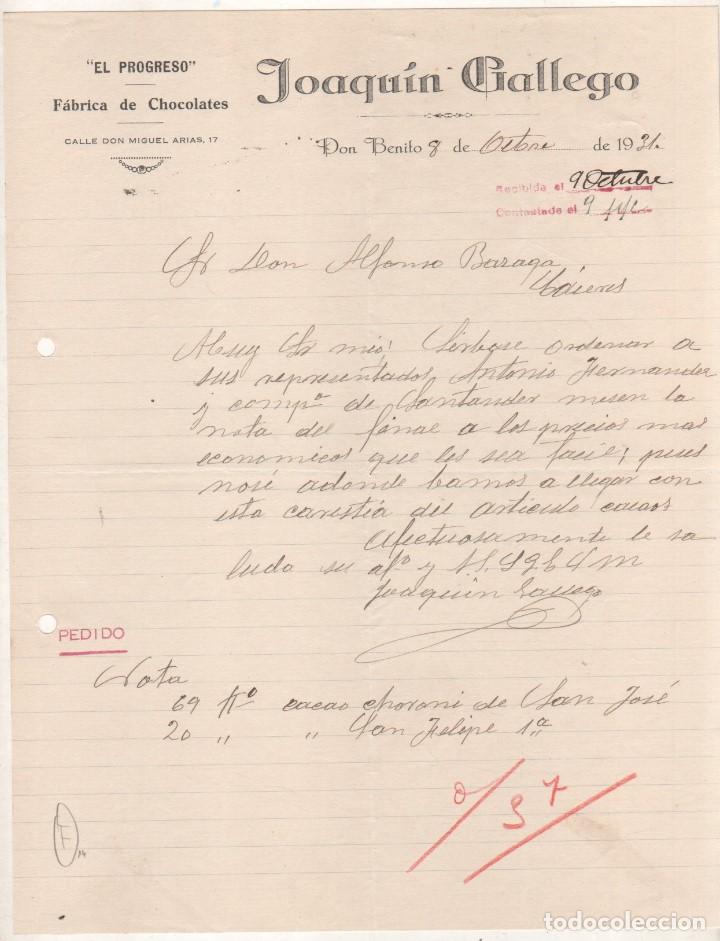 "EL PROGRESO"
Fábrica de Chocolates
CALLE DON MIGUEL ARIAS, 17
Joaquín Gallego
Don Benito 8 de Octbre de 1931.
Recibida el 9 Octubre
Contestada el 9
Sr Don Alfonso Bazaga
Cáceres
Muy Sr mio: Sirbase ordenar a
sus representados Antonio Fernandez
y compª de Santander mesen la
nota del final a los precios mas
economicos que les sea facil; pues
nosé adonde bamos a llegar con
esta carestia del articulo cacaos
Afectuosamente le sa
luda su afº y
Joaquín Gallego
PEDIDO
Nota
69 Kº cacao Choroni de San José
20 " " San Felipe 1ª